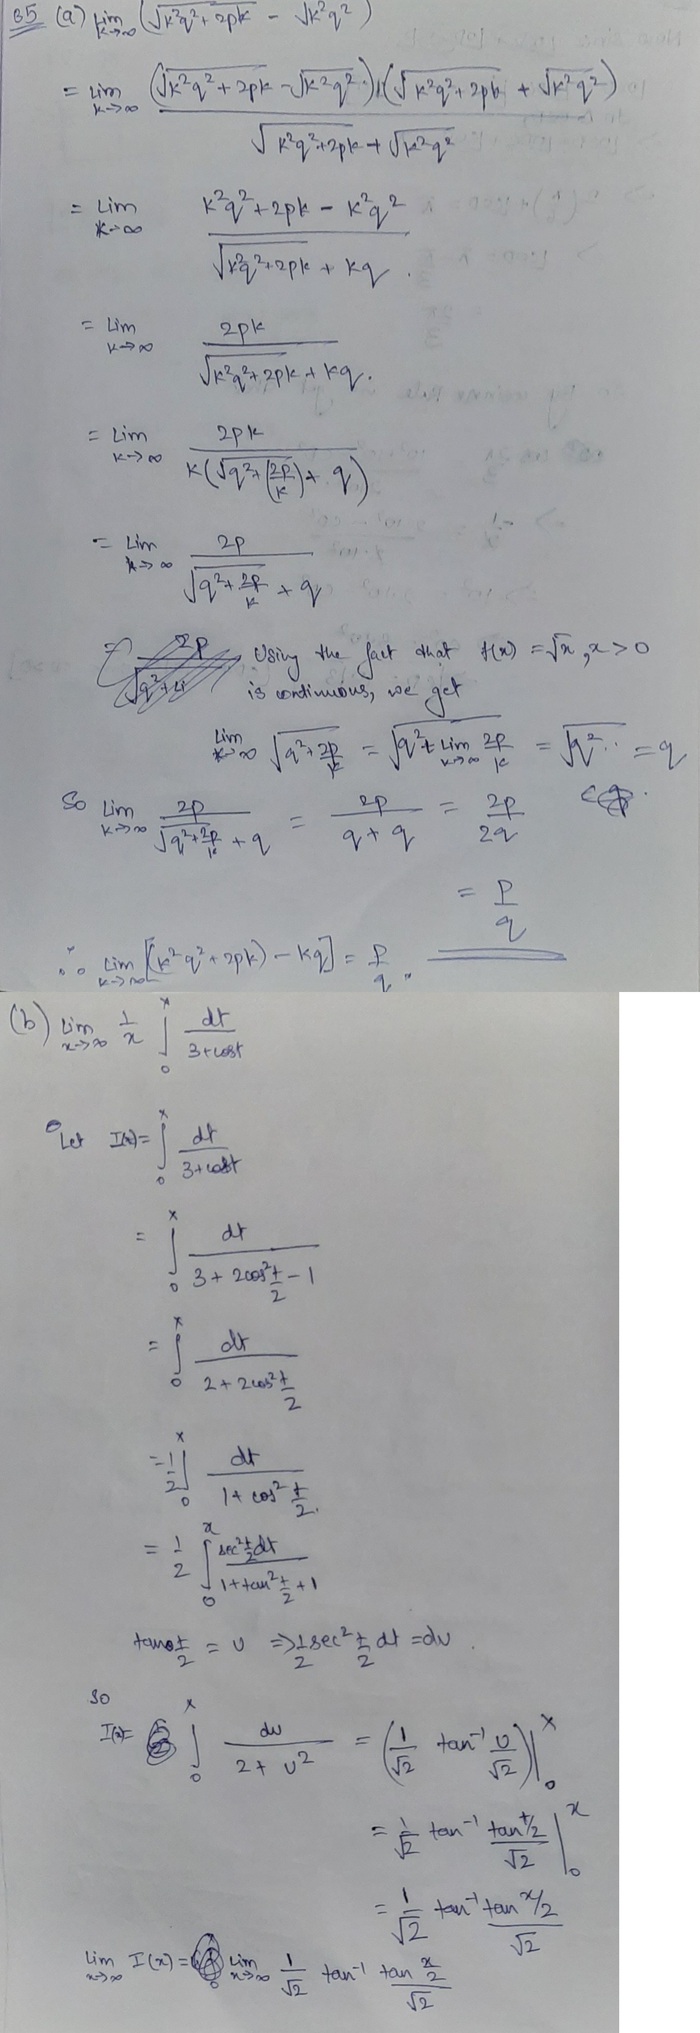 35 (a) Lim k→∞ (√(k²q²+2pk) - √k²q²)
= Lim k→∞ (√(k²q²+2pk) - √k²q²) (√(k²q²+2pk) + √k²q²) / √(k²q²+2pk) + √k²q²
= Lim k→∞ k²q²+2pk - k²q² / √(k²q²+2pk) + kq.
= Lim k→∞ 2pk / √(k²q²+2pk) + kq.
= Lim k→∞ 2pk / k(√(q²+(2p/k)) + q)
= Lim k→∞ 2p / √(q²+2p/k) + q
Using the fact that f(x) = √x, x>0
is continuous, we get
Lim k→∞ √(q²+2p/k) = √(q²+Lim k→∞ 2p/k) = √q² = q
So Lim k→∞ 2p / √(q²+2p/k) + q = 2p / q+q = 2p / 2q
= p/q
∴ Lim k→∞ [(k²q²+2pk) - kq] = p/q.
(b) Lim x→∞ 1/x ∫₀ˣ dt / 3+cost
Let I(x) = ∫₀ˣ dt / 3+cost
= ∫₀ˣ dt / 3+2cos² t/2 - 1
= ∫₀ˣ dt / 2+2cos² t/2
= 1/2 ∫₀ˣ dt / 1+cos² t/2.
= 1/2 ∫₀ˣ sec² t/2 dt / 1+tan² t/2 +1
tan t/2 = u ⇒ 1/2 sec² t/2 dt = du.
So
I(x) = ∫₀ˣ du / 2+u² = (1/√2 tan⁻¹ u/√2)|₀ˣ
= 1/√2 tan⁻¹ tan t/2 / √2 |₀ˣ
= 1/√2 tan⁻¹ tan x/2 / √2
Lim x→∞ I(x) = Lim x→∞ 1/√2 tan⁻¹ tan x/2 / √2